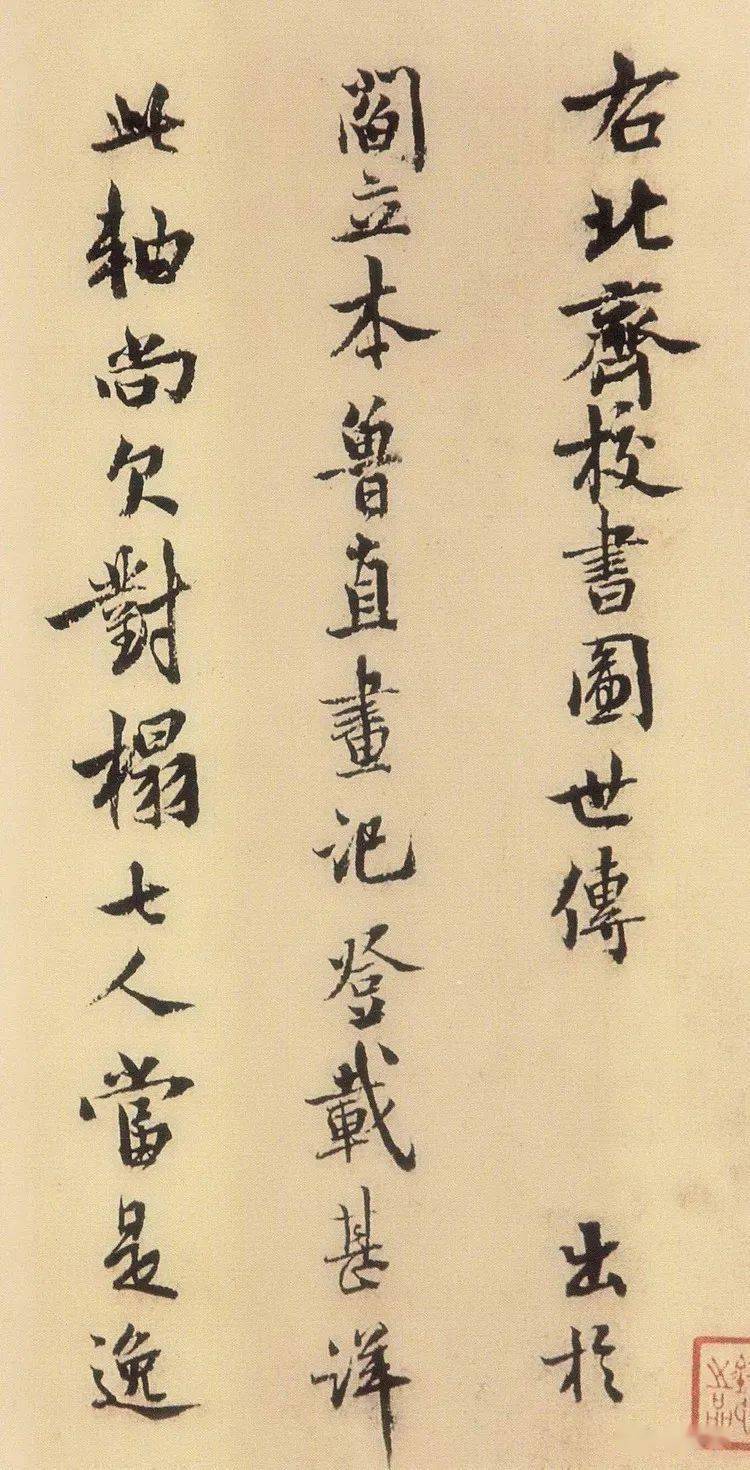 右北齊校書圖世傳 出於
閻立本魯直畫記登載甚詳
此軸尚欠對榻七人當是逸